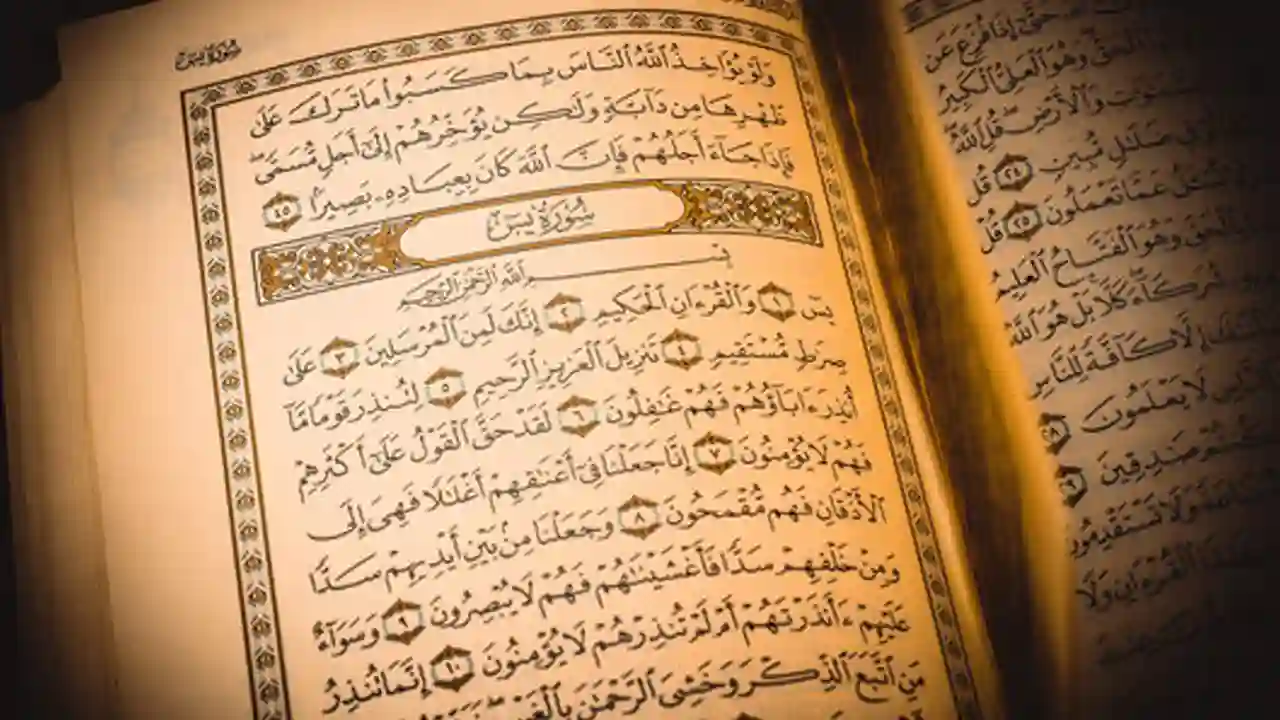 سُورَةُ يسٓ
وَلَوْ يُؤَاخِذُ ٱللَّهُ ٱلنَّاسَ بِمَا كَسَبُوا۟ مَا تَرَكَ عَلَىٰ
ظَهْرِهَا مِن دَآبَّةٍ وَلَٰكِن يُؤَخِّرُهُمْ إِلَىٰٓ أَجَلٍ مُّسَمًّى
فَإِذَا جَآءَ أَجَلُهُمْ فَإِنَّ ٱللَّهَ كَانَ بِعِبَادِهِۦ بَصِيرًۢا ٤٥
سُورَةُ يسٓ
بِسْمِ ٱللَّهِ ٱلرَّحْمَٰنِ ٱلرَّحِيمِ
يسٓ ١ وَٱلْقُرْءَانِ ٱلْحَكِيمِ ٢ إِنَّكَ لَمِنَ ٱلْمُرْسَلِينَ ٣ عَلَىٰ
صِرَٰطٍ مُّسْتَقِيمٍ ٤ تَنزِيلَ ٱلْعَزِيزِ ٱلرَّحِيمِ ٥ لِتُنذِرَ قَوْمًا مَّآ
أُنذِرَ ءَابَآؤُهُمْ فَهُمْ غَٰفِلُونَ ٦ لَقَدْ حَقَّ ٱلْقَوْلُ عَلَىٰٓ أَكْثَرِهِمْ
فَهُمْ لَا يُؤْمِنُونَ ٧ إِنَّا جَعَلْنَا فِىٓ أَعْنَٰقِهِمْ أَغْلَٰلًا فَهِىَ إِلَى
ٱلْأَذْقَانِ فَهُم مُّقْمَحُونَ ٨ وَجَعَلْنَا مِنۢ بَيْنِ أَيْدِيهِمْ سَدًّا
وَمِنْ خَلْفِهِمْ سَدًّا فَأَغْشَيْنَٰهُمْ فَهُمْ لَا يُبْصِرُونَ ٩ وَسَوَآءٌ
عَلَيْهِمْ ءَأَنذَرْتَهُمْ أَمْ لَمْ تُنذِرْهُمْ لَا يُؤْمِنُونَ ١٠ إِنَّمَا تُنذِرُ
مَنِ ٱتَّبَعَ ٱلذِّكْرَ وَخَشِىَ ٱلرَّحْمَٰنَ بِٱلْغَيْبِ
حَتَّىٰٓ إِذَا فُزِّعَ عَن
ٱلْحَقَّ وَهُوَ ٱلْعَلِىُّ ٱلْكَبِيرُ
وَٱلْأَرْضِ قُلِ ٱللَّهُ
ضَلَٰلٍ مُّبِينٍ ٢٤ قُل
عَمَّا تَعْمَلُونَ ٢٥ قُلْ
وَهُوَ ٱلْفَتَّاحُ ٱلْعَلِيمُ
شُرَكَآءَ كَلَّا بَلْ هُوَ ٱللَّهُ
إِلَّا كَآفَّةً لِّلنَّاسِ
لَا يَعْلَمُونَ ٢٨
صَٰدِقِينَ
وَلَا تَسْتَقْدِمُونَ
ٱلْقُرْءَانِ وَلَا